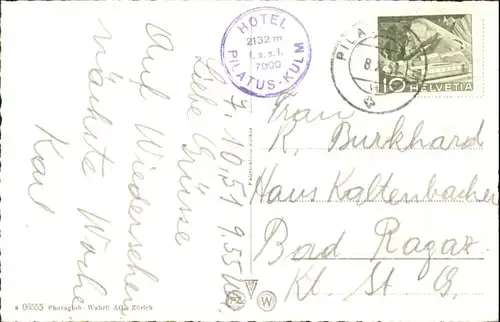 HOTEL
2132 m
f.a.s.l.
7000
PILATUS-KULM
10 HELVETIA
7.10.51 9.55 Uhr.
Liebe Grüsse
Auf Wiedersehen
nächste Woche
Karl
Frau
K. Burkhard
Haus Kaltenbacher
Bad Ragaz
Kt. St G.
a 06555 Photoglob-Wehrli A.G. Zürich
PZ
W